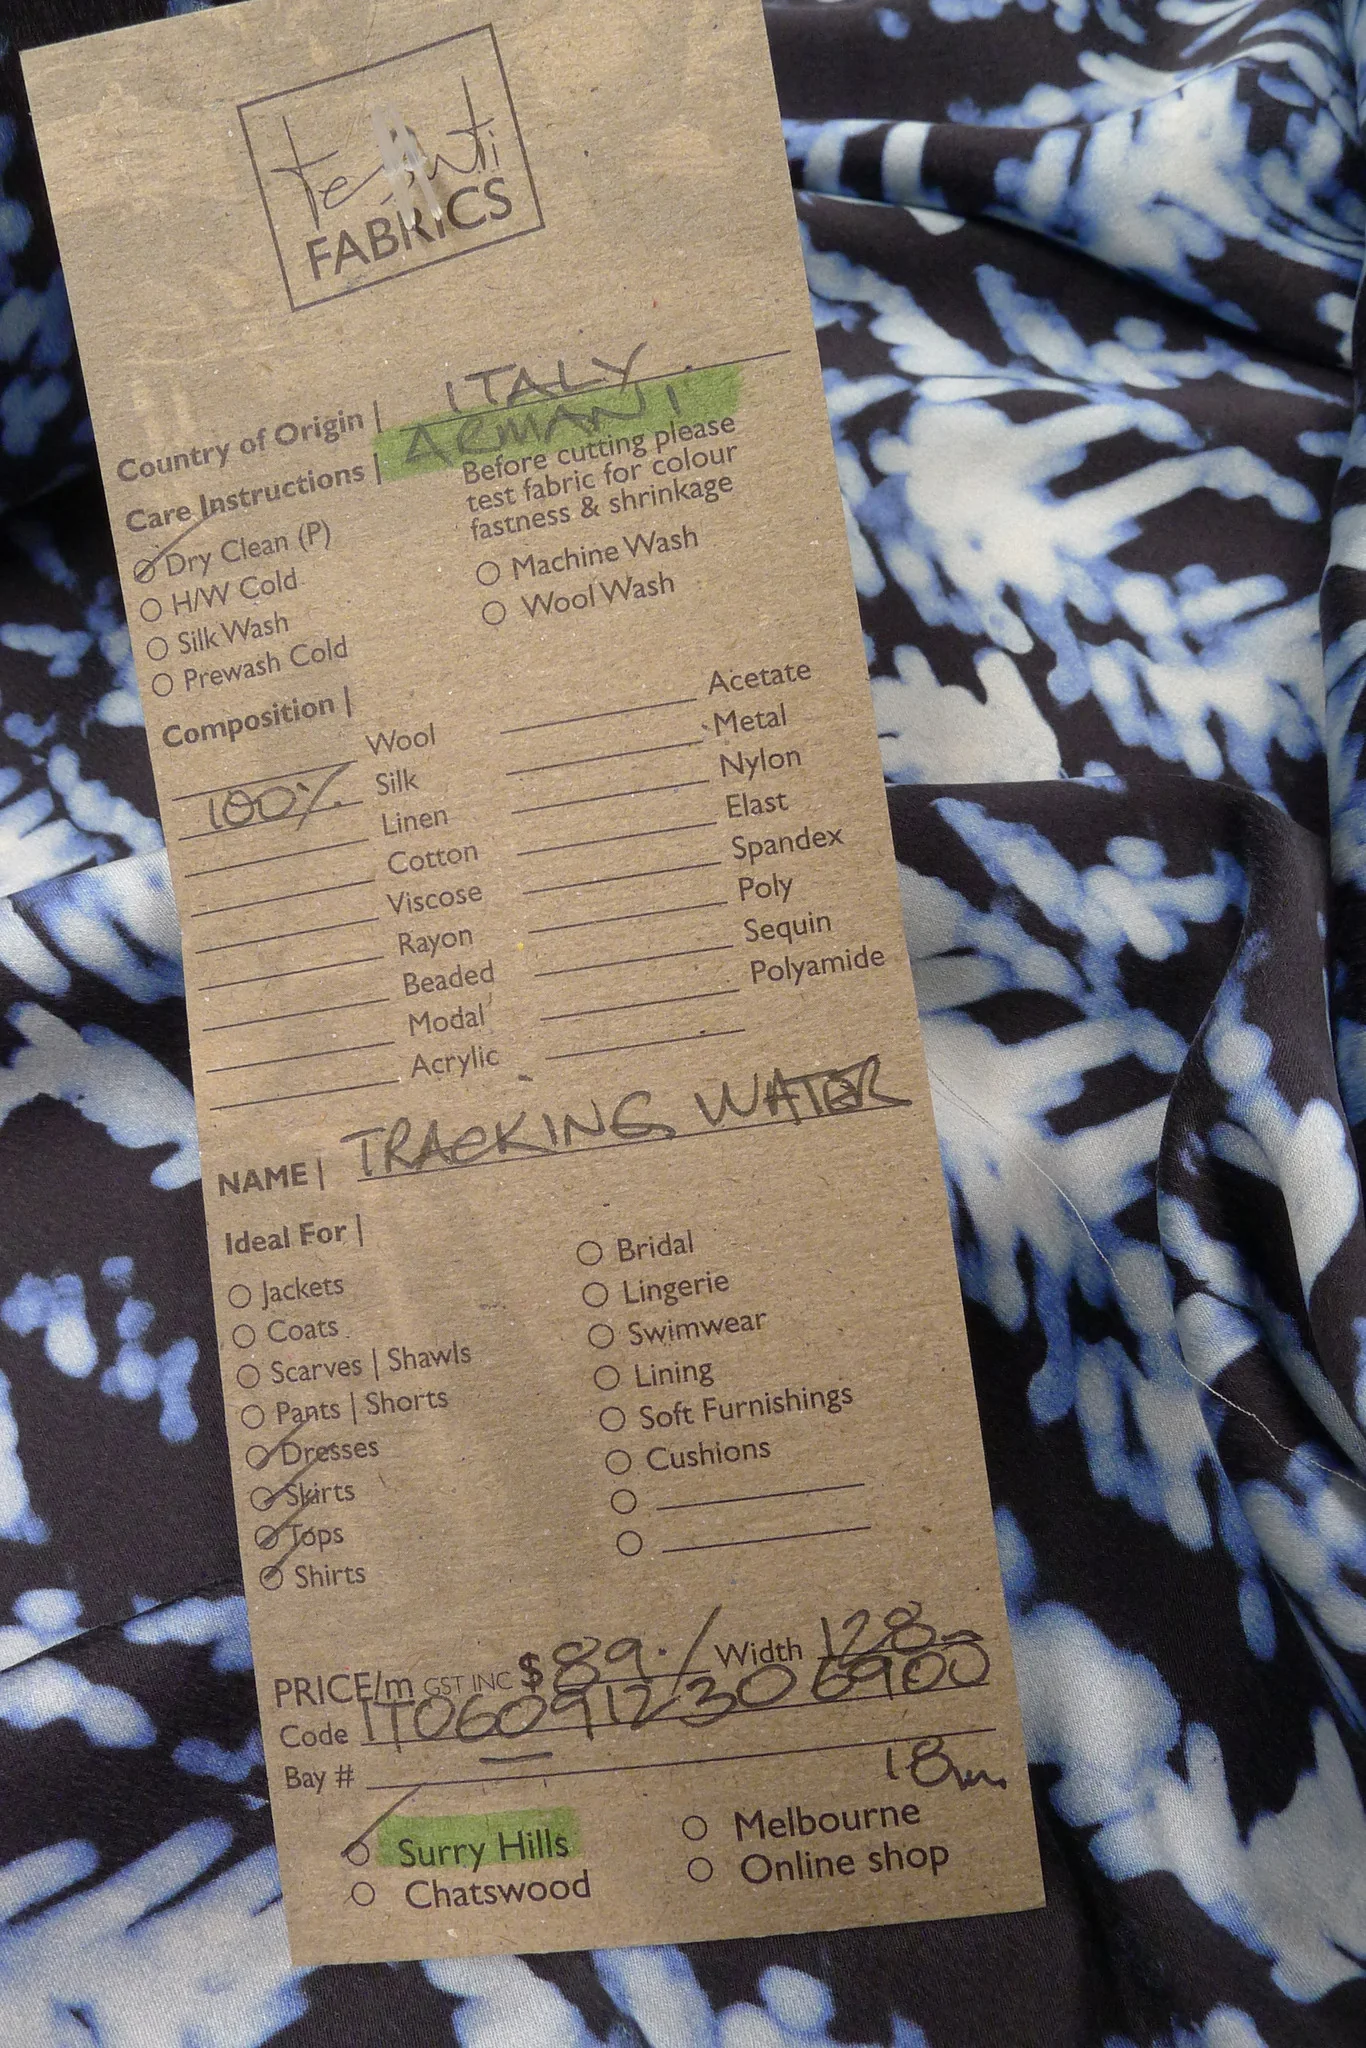 tessuti
FABRICS
Country of Origin | ITALY
ARMANI
Care Instructions | Before cutting please
test fabric for colour
fastness & shrinkage
Dry Clean (P)
H/W Cold
Silk Wash
Prewash Cold
Machine Wash
Wool Wash
Composition |
Wool
100% Silk
Linen
Cotton
Viscose
Rayon
Beaded
Modal
Acrylic
Acetate
Metal
Nylon
Elast
Spandex
Poly
Sequin
Polyamide
NAME | TRACKING WATER
Ideal For |
Jackets
Coats
Scarves | Shawls
Pants | Shorts
Dresses
Skirts
Tops
Shirts
Bridal
Lingerie
Swimwear
Lining
Soft Furnishings
Cushions
PRICE/m GST INC $89./ Width 128
Code IT060912306900
Bay #
18m
Surry Hills
Chatswood
Melbourne
Online shop